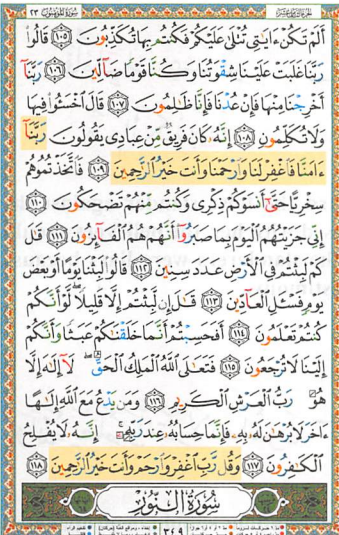 سُورَةُ المُؤْمِنُونَ ٢٣
أَلَمْ تَكُنْ ءَايَٰتِى تُتْلَىٰ عَلَيْكُمْ فَكُنتُم بِهَا تُكَذِّبُونَ ١٠٥ قَالُوا۟
رَبَّنَا غَلَبَتْ عَلَيْنَا شِقْوَتُنَا وَكُنَّا قَوْمًا ضَآلِّينَ ١٠٦ رَبَّنَآ
أَخْرِجْنَا مِنْهَا فَإِنْ عُدْنَا فَإِنَّا ظَٰلِمُونَ ١٠٧ قَالَ ٱخْسَـُٔوا۟ فِيهَا
وَلَا تُكَلِّمُونِ ١٠٨ إِنَّهُۥ كَانَ فَرِيقٌ مِّنْ عِبَادِى يَقُولُونَ رَبَّنَآ
ءَامَنَّا فَٱغْفِرْ لَنَا وَٱرْحَمْنَا وَأَنتَ خَيْرُ ٱلرَّٰحِمِينَ ١٠٩ فَٱتَّخَذْتُمُوهُمْ
سِخْرِيًّا حَتَّىٰٓ أَنسَوْكُمْ ذِكْرِى وَكُنتُم مِّنْهُمْ تَضْحَكُونَ ١١٠
إِنِّى جَزَيْتُهُمُ ٱلْيَوْمَ بِمَا صَبَرُوٓا۟ أَنَّهُمْ هُمُ ٱلْفَآئِزُونَ ١١١ قَٰلَ
كَمْ لَبِثْتُمْ فِى ٱلْأَرْضِ عَدَدَ سِنِينَ ١١٢ قَالُوا۟ لَبِثْنَا يَوْمًا أَوْ بَعْضَ
يَوْمٍ فَسْـَٔلِ ٱلْعَآدِّينَ ١١٣ قَٰلَ إِن لَّبِثْتُمْ إِلَّا قَلِيلًا ۖ لَّوْ أَنَّكُمْ
كُنتُمْ تَعْلَمُونَ ١١٤ أَفَحَسِبْتُمْ أَنَّمَا خَلَقْنَٰكُمْ عَبَثًا وَأَنَّكُمْ
إِلَيْنَا لَا تُرْجَعُونَ ١١٥ فَتَعَٰلَى ٱللَّهُ ٱلْمَلِكُ ٱلْحَقُّ ۖ لَآ إِلَٰهَ إِلَّا
هُوَ رَبُّ ٱلْعَرْشِ ٱلْكَرِيمِ ١١٦ وَمَن يَدْعُ مَعَ ٱللَّهِ إِلَٰهًا
ءَاخَرَ لَا بُرْهَٰنَ لَهُۥ بِهِۦ فَإِنَّمَا حِسَابُهُۥ عِندَ رَبِّهِۦٓ ۚ إِنَّهُۥ لَا يُفْلِحُ
ٱلْكَٰفِرُونَ ١١٧ وَقُل رَّبِّ ٱغْفِرْ وَٱرْحَمْ وَأَنتَ خَيْرُ ٱلرَّٰحِمِينَ ١١٨
سُورَةُ النُّورِ
٣٤٩